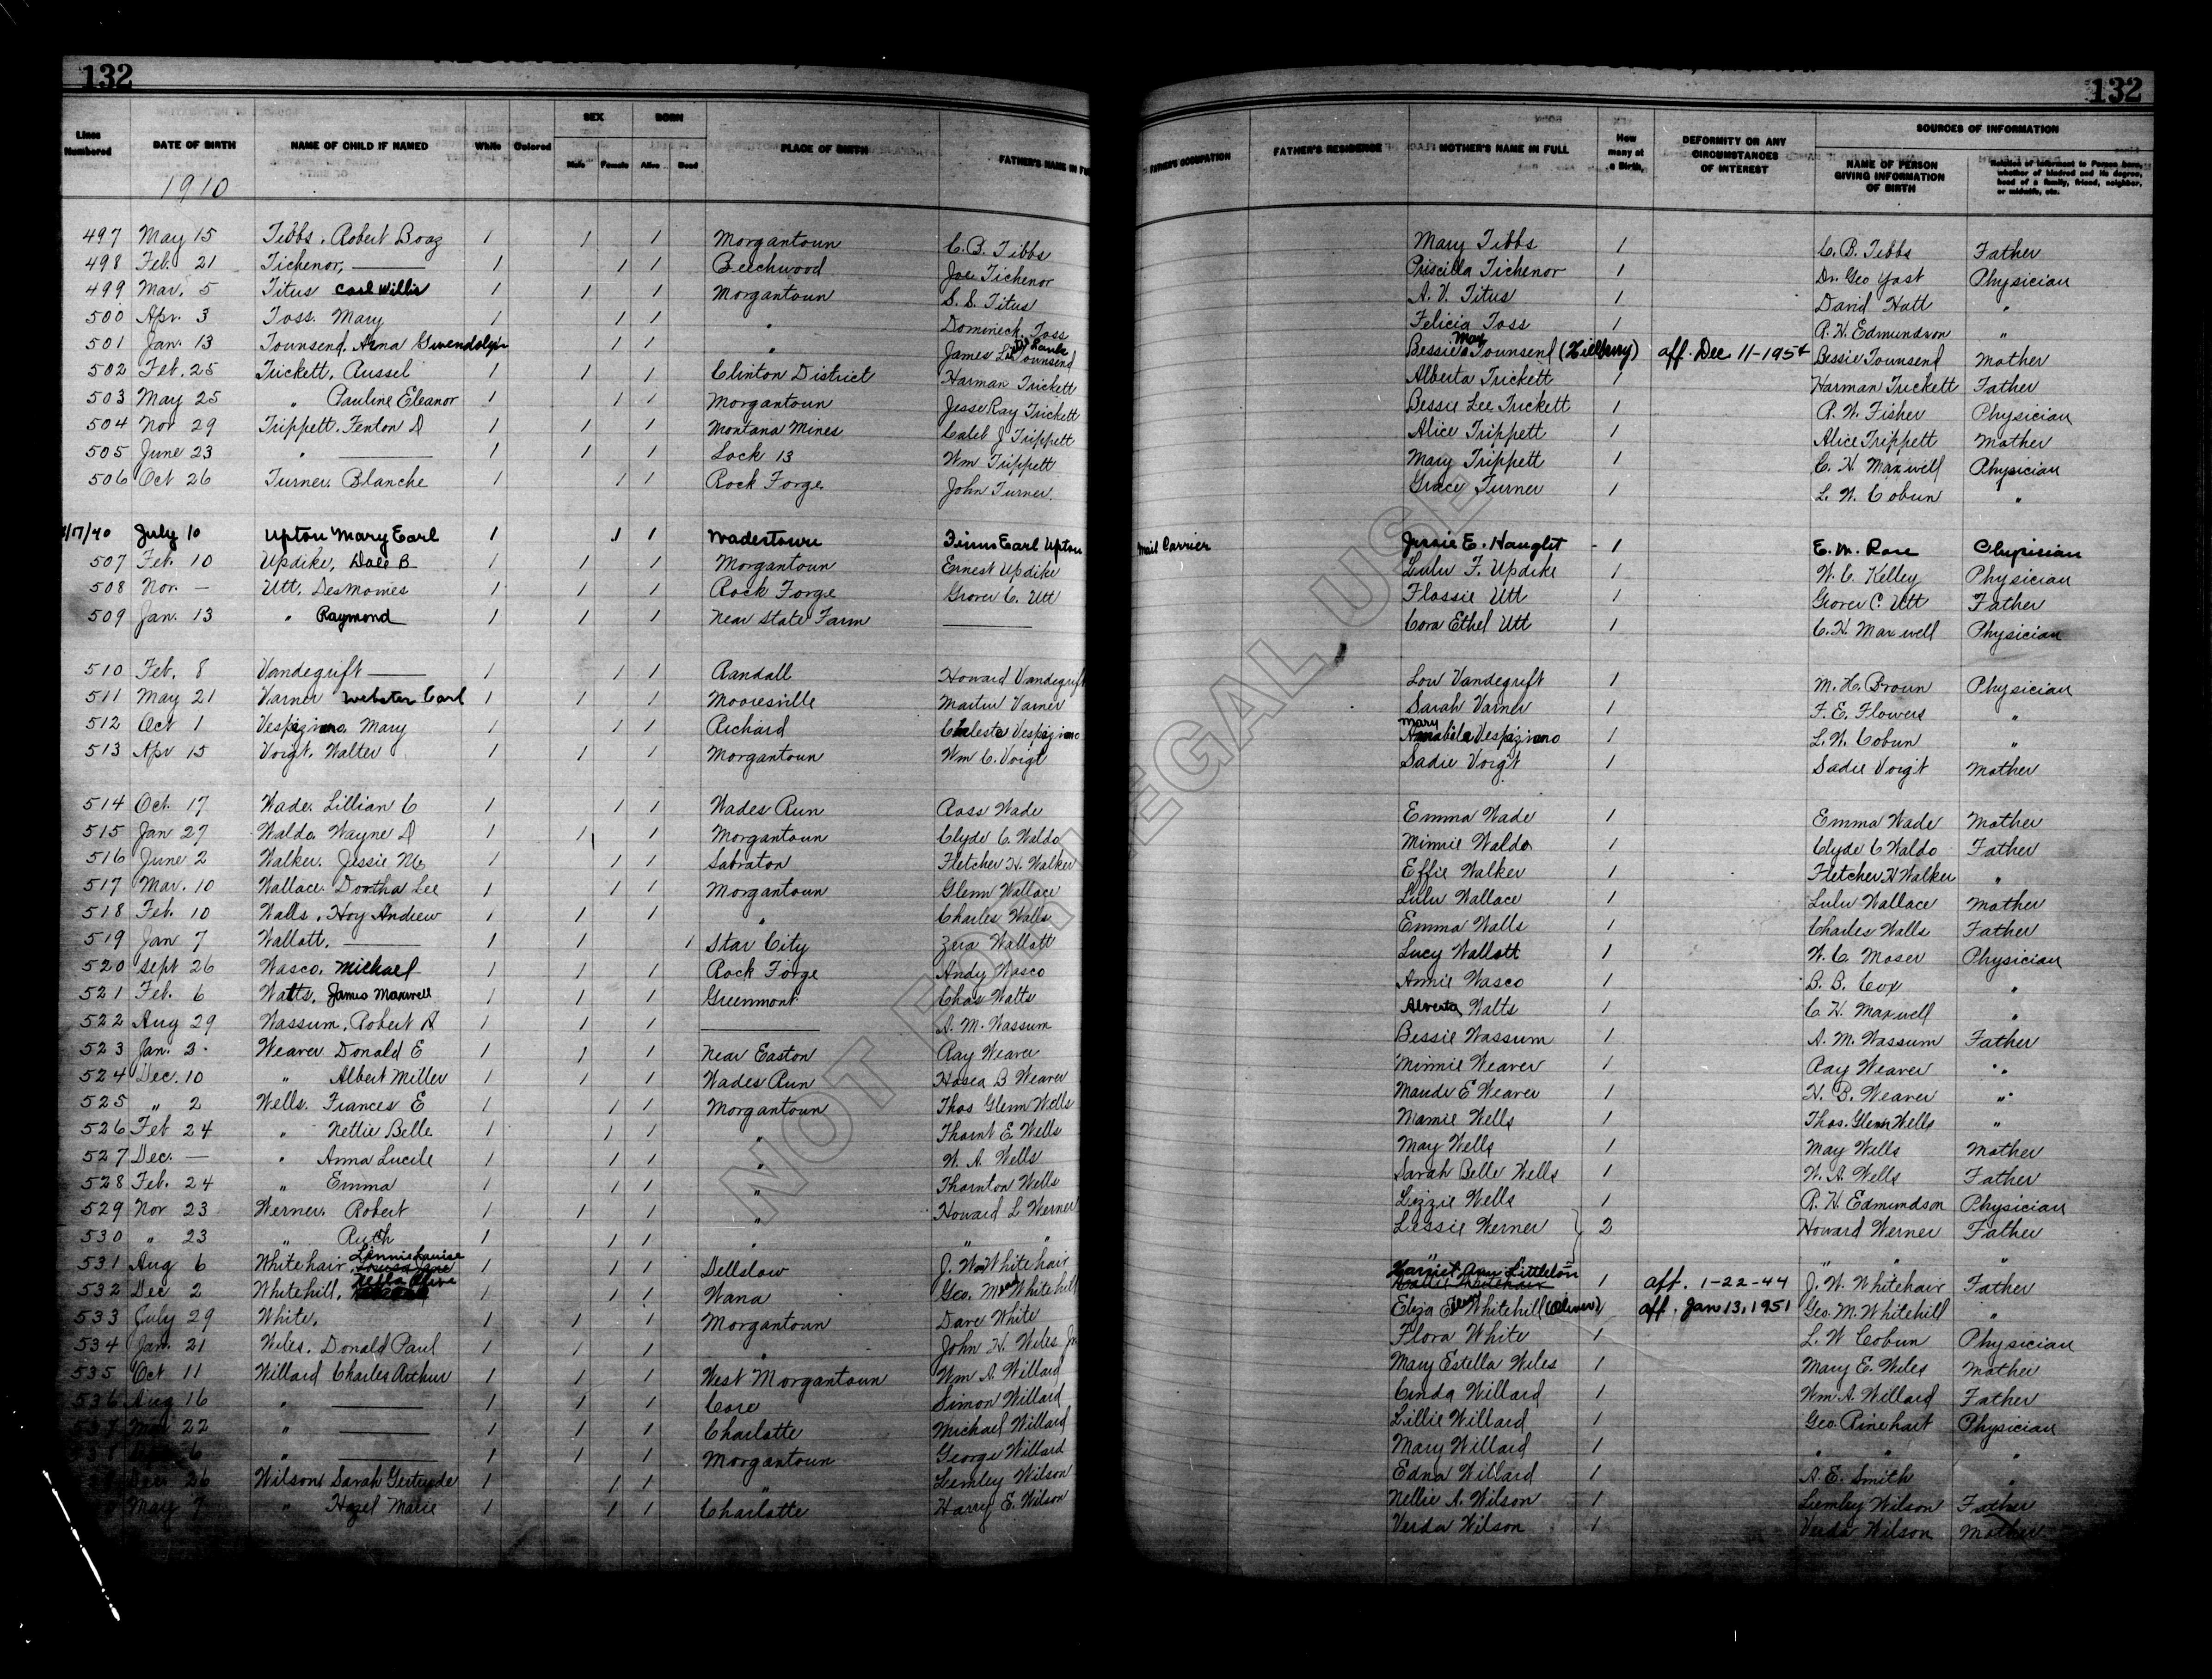 132 132
Lines Numbered DATE OF BIRTH NAME OF CHILD IF NAMED White Colored SEX Male Female BORN Alive Dead PLACE OF BIRTH FATHER'S NAME IN FULL FATHER'S OCCUPATION FATHER'S RESIDENCE MOTHER'S NAME IN FULL How many at a Birth. DEFORMITY OR ANY CIRCUMSTANCES OF INTEREST SOURCES OF INFORMATION NAME OF PERSON GIVING INFORMATION OF BIRTH Relation of Informant to Person born, whether of kindred and its degree, head of a family, friend, neighbor, or midwife, etc.
1910
497 May 15 Tibbs, Robert Boaz 1 1 1 Morgantown C. B. Tibbs Mary Tibbs 1 C. B. Tibbs Father
498 Feb. 21 Tichenor, —— 1 1 1 Beechwood Joe Tichenor Priscilla Tichenor 1 Dr. Geo Yost Physician
499 Mar. 5 Titus Carl Willis 1 1 1 Morgantown S. S. Titus A. V. Titus 1 David Hott "
500 Apr. 3 Toss. Mary 1 1 1 " Domineck Toss Felicia Toss 1 R. H. Edmundson "
501 Jan. 13 Townsend, Arna Gwendolyn 1 1 1 " James Townsend Bessie May Townsend 1 aff. Dec 11-195 Bessie Townsend Mother
502 Feb. 25 Trickett, Russel 1 1 1 Clinton District Harman Trickett Alberta Trickett 1 Harman Trickett Father
503 May 25 " Pauline Eleanor 1 1 1 Morgantown Jesse Ray Trickett Bessie Lee Trickett 1 R. W. Fisher Physician
504 Nov 29 Trippett, Fenton D 1 1 1 Montana Mines Caleb J Trippett Alice Trippett 1 Alice Trippett Mother
505 June 23 " —— 1 1 1 Lock 13 Wm Trippett Mary Trippett 1 C. H. Maxwell Physician
506 Oct 26 Turner. Blanche 1 1 1 Rock Forge John Turner Grace Turner 1 L. W. Cobun "
/17/40 July 10 Upton Mary Earl 1 1 1 Wadestown Earl Upton Mail Carrier Jessie E. Haught 1 E. M. Physician
507 Feb. 10 Updike, Dale B 1 1 1 Morgantown Ernest Updike Lulu F. Updike 1 W. C. Kelley Physician
508 Nov. — Utt. DesMoines 1 1 1 Rock Forge Grover C. Utt Flossie Utt 1 Grover C. Utt Father
509 Jan. 13 " Raymond 1 1 1 Near State Farm —— Cora Ethel Utt 1 C. H. Maxwell Physician
510 Feb. 8 Vandegrift —— 1 1 1 Randall Howard Vandegrift Lou Vandegrift 1 M. H. Brown Physician
511 May 21 Varner Webster Carl 1 1 1 Mooresville Martin Varner Sarah Varner 1 F. E. Flowers "
512 Oct 1 Vespaziano, Mary 1 1 1 Richard Celeste Vespaziano Mary Vespaziano 1 L. W. Cobun "
513 Apr 15 Voigt. Walter 1 1 1 Morgantown Wm C. Voigt Sadie Voigt 1 Sadie Voigt Mother
514 Oct. 17 Wade. Lillian C 1 1 1 Wades Run Ross Wade Emma Wade 1 Emma Wade Mother
515 Jan 27 Waldo Wayne D 1 1 1 Morgantown Clyde C. Waldo Minnie Waldo 1 Clyde C Waldo Father
516 June 2 Walker. Jessie M. 1 1 1 Sabraton Fletcher H. Walker Effie Walker 1 Fletcher H Walker "
517 Mar. 10 Wallace. Dortha Lee 1 1 1 Morgantown Glenn Wallace Lulu Wallace 1 Lulu Wallace Mother
518 Feb. 10 Walls, Hoy Andrew 1 1 1 " Charles Walls Emma Walls 1 Charles Walls Father
519 Jan 7 Wallott. —— 1 1 1 Star City Zera Wallott Lucy Wallott 1 W. C. Moser Physician
520 Sept 26 Wasco, Michael 1 1 1 Rock Forge Andy Wasco Annie Wasco 1 B. B. Cox "
521 Feb. 6 Watts, James Maxwell 1 1 1 Greenmont Chas Watts Alverta Watts 1 C H. Maxwell "
522 Aug 29 Wassum, Robert A 1 1 1 —— A. M. Wassum Bessie Wassum 1 A. M. Wassum Father
523 Jan. 3 Weaver Donald E 1 1 1 Near Easton Ray Weaver Minnie Weaver 1 Ray Weaver "
524 Dec. 10 " Albert Miller 1 1 1 Wades Run Hosea B Weaver Maude E Weaver 1 H. B. Weaver "
525 " 2 Wells. Frances E 1 1 1 Morgantown Thos Glenn Wells Mamie Wells 1 Thos. Glenn Wells "
526 Feb 24 " Nettie Belle 1 1 1 " Thornt E. Wells May Wells 1 May Wells Mother
527 Dec. — " Anna Lucile 1 1 1 " W. A. Wells Sarah Belle Wells 1 W. A. Wells Father
528 Feb. 24 " Emma 1 1 1 " Thornton Wells Lizzie Wells 1 R. H. Edmundson Physician
529 Nov 23 Werner. Robert 1 1 1 " Howard L Werner Lessie Werner 2 Howard Werner Father
530 " 23 " Ruth 1 1 1 " " " " "
531 Aug 6 Whitehair, Louise 1 1 1 Dellslow J. W. Whitehair Harriet Ann Littleton 1 aff. 1-22-44 J. W. Whitehair Father
532 Dec 2 Whitehill, Olive 1 1 1 Wana Geo. M Whitehill Eliza Whitehill (Oliver) 1 aff. Jan 13, 1951 Geo. M. Whitehill "
533 July 29 White, 1 1 1 Morgantown Dave White Flora White 1 L. W Cobun Physician
534 Jan. 21 Wiles. Donald Paul 1 1 1 " John H. Wiles Jr Mary Estella Wiles 1 Mary E. Wiles Mother
535 Oct 11 Willard Charles Arthur 1 1 1 West Morgantown Wm A. Willard Cinda Willard 1 Wm A. Willard Father
536 Aug 16 " —— 1 1 1 Core Simon Willard Lillie Willard 1 Geo. Rinehart Physician
22 " —— 1 1 1 Charlotte Michael Willard Mary Willard 1 " " "
6 " —— 1 1 1 Morgantown George Willard Edna Willard 1 A. E. Smith "
Dec 26 Wilson Sarah Gertrude 1 1 1 " Lemley Wilson Nellie A. Wilson 1 Lemley Wilson Father
May 7 " Hazel Marie 1 1 1 Charlotte Harry E. Wilson Verda Wilson 1 Verda Wilson Mother
NOT FOR LEGAL USE